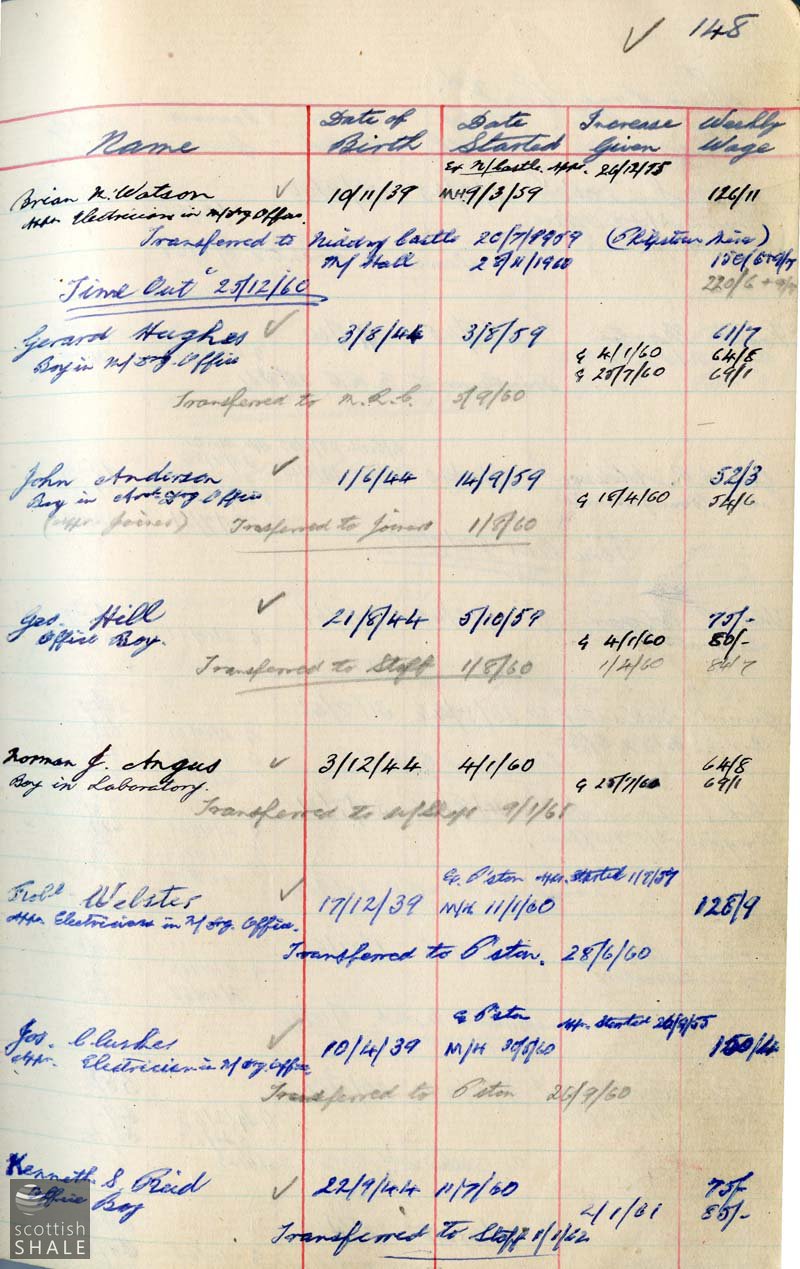 148
Name Date of Birth Date Started Increase Given Weekly Wage
Ex N/Castle. App. 26/12/55
Brian N. Watson 10/11/39 MH 9/3/59 126/11
App. Electrician in Office.
Transferred to Niddry Castle 20/7/1959
M/Hall 28/11/1960
Time Out 25/12/60 220/6 +
Gerard Hughes 3/8/44 3/8/59 61/7
Boy in Office G 4/1/60 64/8
G 25/7/60 69/1
Transferred to 5/9/60
John Anderson 1/6/44 14/9/59 52/3
Boy in Office G 18/4/60 54/6
(Appr. Joiner) Transferred to Joiners 1/8/60
Geo. Hill 21/8/44 5/10/59 75/-
Office Boy. G 4/1/60 80/-
Transferred to Staff 1/8/60 1/4/60 84/7
Norman J. Angus 3/12/44 4/1/60 64/8
Boy in Laboratory. G 25/7/60 69/1
Transferred to 9/1/65
P'ston App. Started
Robt. Webster 17/12/39 M/H 11/1/60 128/9
App. Electrician in Office.
Transferred to P'ston. 28/6/60
P'ston App. Started 26/9/55
Jos. 10/4/39 M/H 30/5/60 150/4
App. Electrician in Office
Transferred to P'ston 26/9/60
Kenneth S. Reid 22/9/44 11/7/60 75/-
Office Boy 2/1/61 85/-
Transferred to Staff 1/1/62
scottish
SHALE